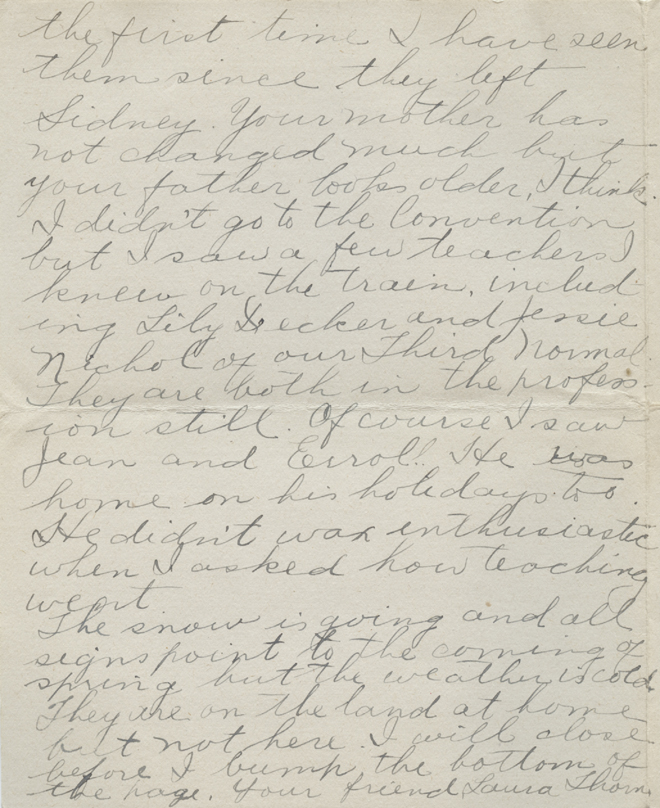 the first time I have seen
them since they left
Sidney. Your mother has
not changed much but
your father looks older, I think.
I didn't go to the Convention
but I saw a few teachers I
knew on the train, includ-
ing Lily Decker and Jessie
Nichol of our Third Normal.
They are both in the profess-
ion still. Of course I saw
Jean and Errol!. He was
home on his holidays too.
He didn't wax enthusiastic
when I asked how teaching
went.
The snow is going and all
signs point to the coming of
spring but the weather is cold.
They are on the land at home
but not here. I will close
before I bump the bottom of
the page. Your friend Laura Thom